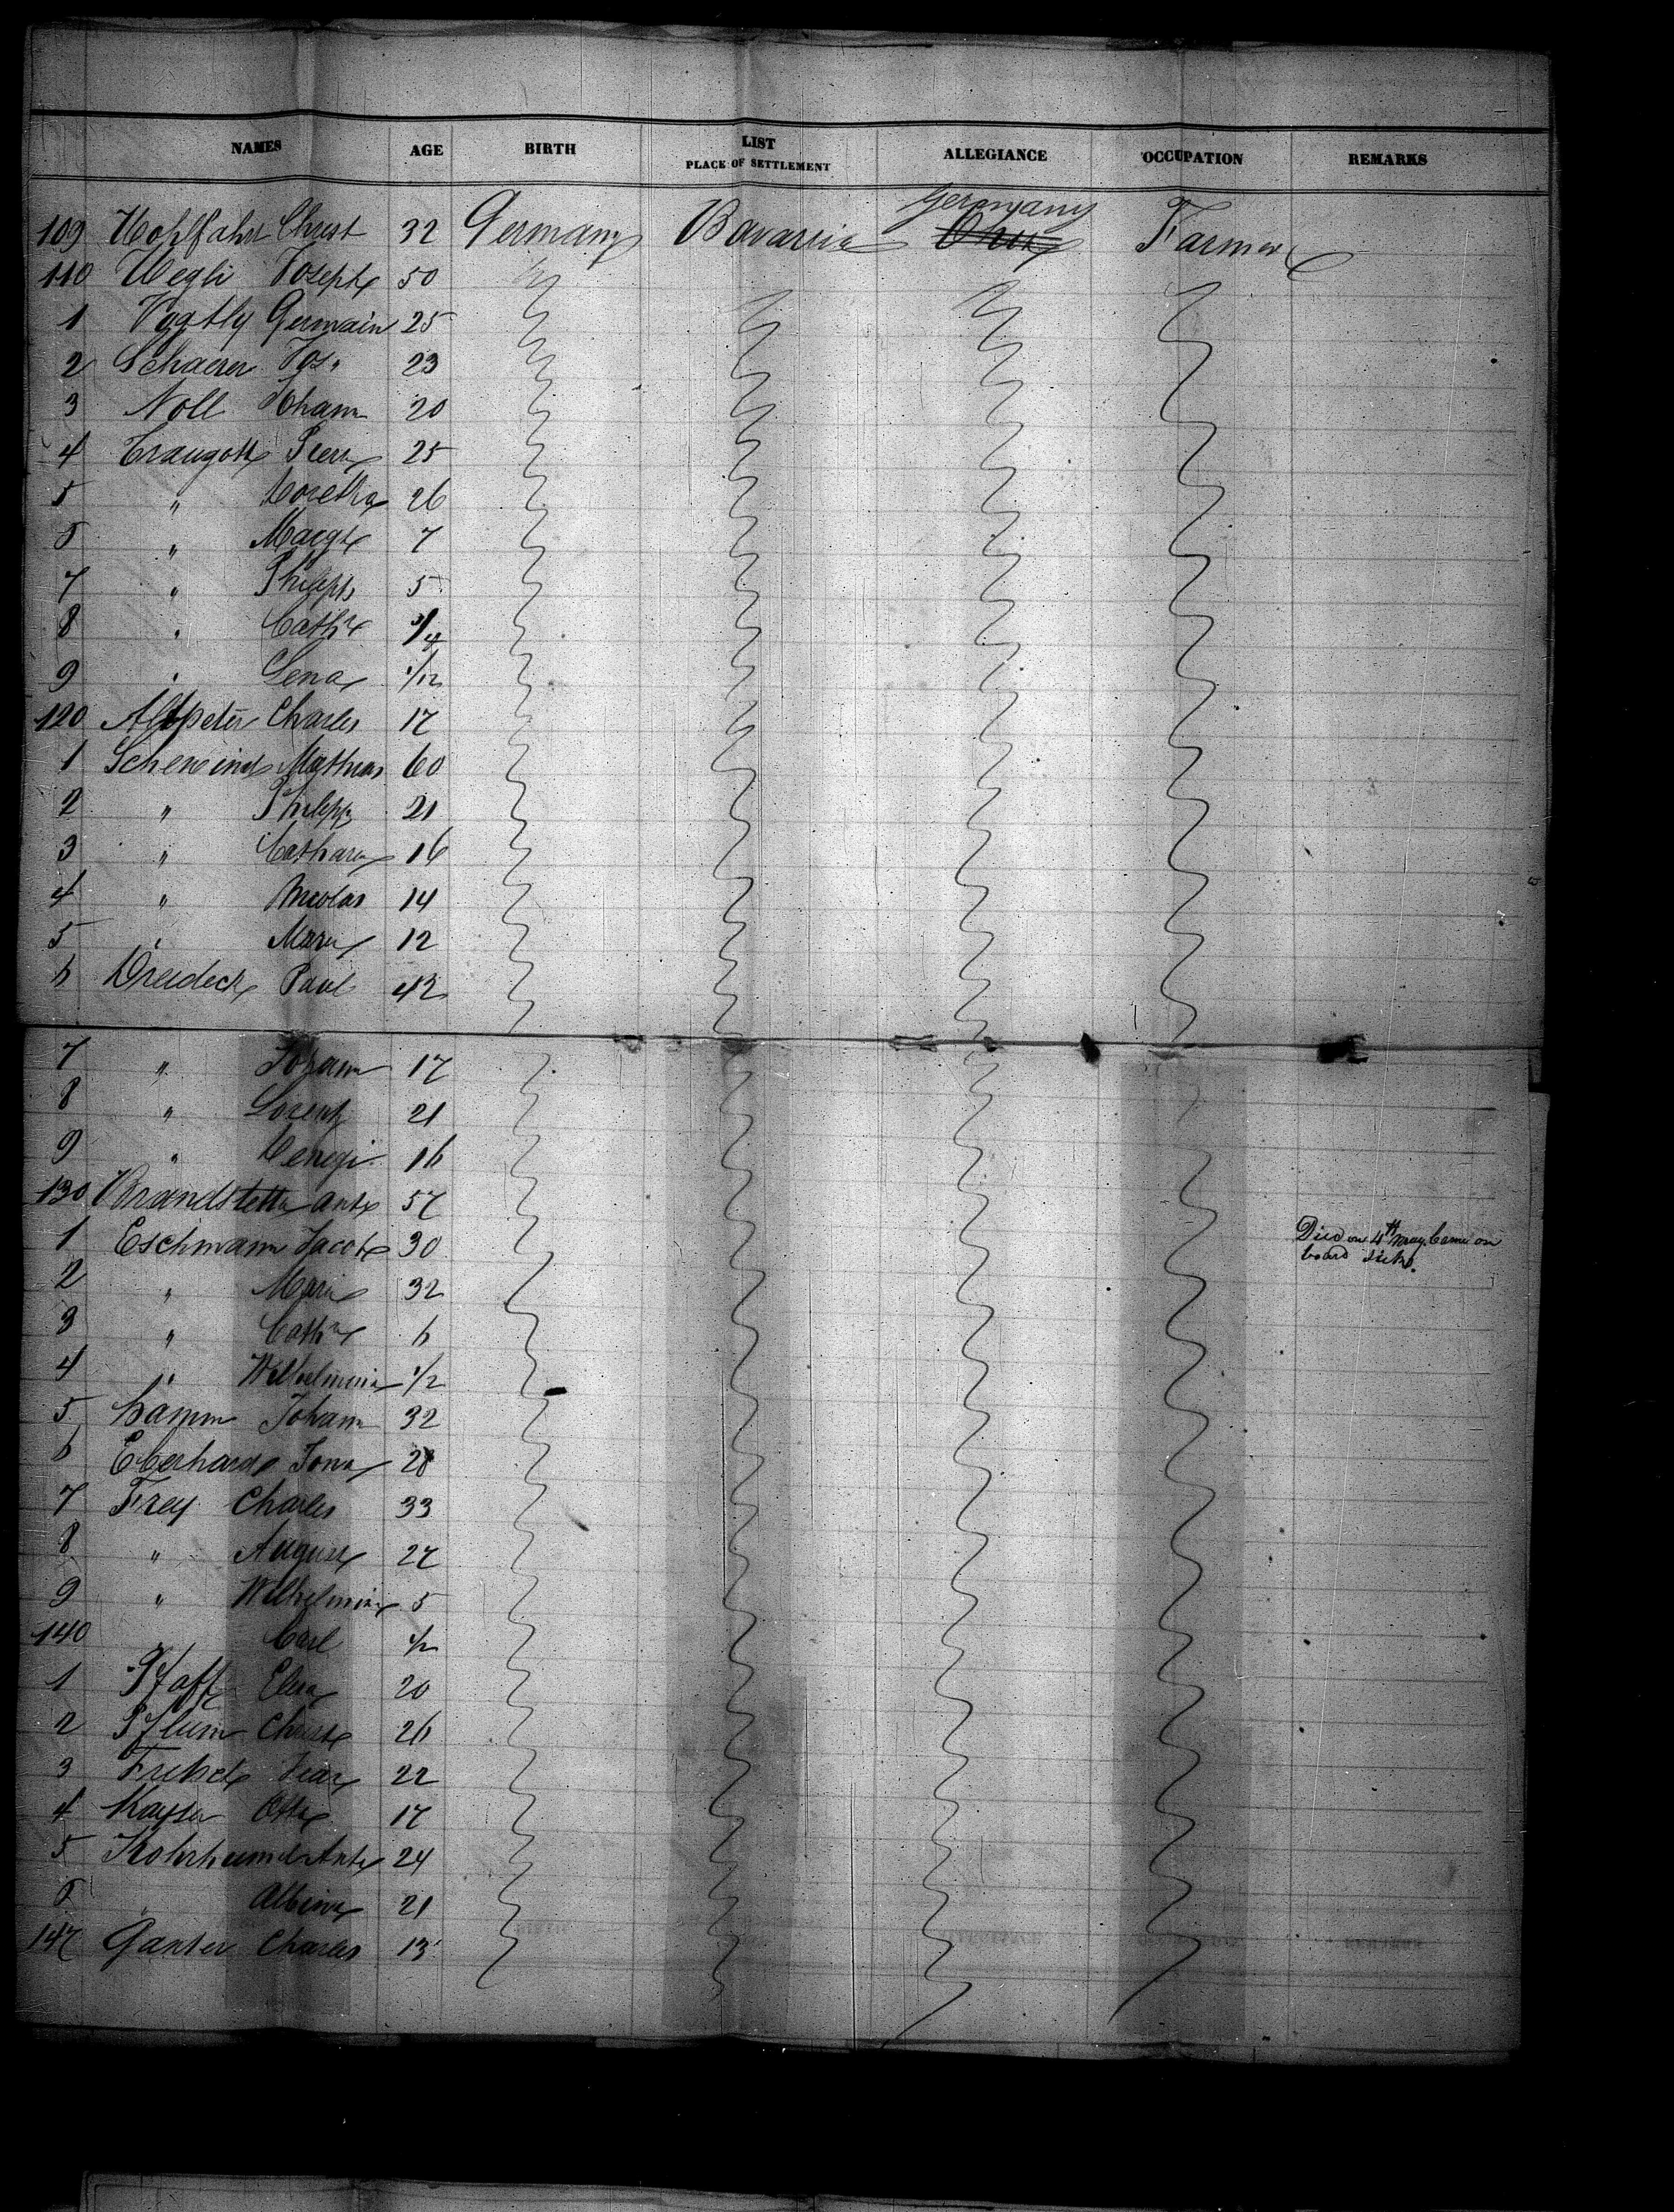 NAMES AGE BIRTH LIST PLACE OF SETTLEMENT ALLEGIANCE OCCUPATION REMARKS
Germany
109 Christ 32 Germany Bavaria Ohio Farmer
110 Wegli Joseph 50
1 Vogtly Germain 25
2 Schaerer Jos. 23
3 Noll Johann 20
4 Traugott 25
5 " 26
6 " Margt 7
7 " Philipp 5
8 " Cathe 3/4
9 " Lena 1/12
120 Altpeter Charles 17
1 Mathias 60
2 " Philipp 21
3 " Cathar 16
4 " Nicolas 14
5 " Maria 12
6 Dreideck Paul 42
7 " Johann 17
8 " Lorentz 21
9 " 16
130 Brandstetter Ant 57
1 Eschmann Jacob 30 Died on 4th May. Came on
board sick.
2 " Maria 32
3 " Cathe 6
4 " Wilhelmina 1/2
5 Hamm Johann 32
6 Eberhard 28
7 Frey Charles 33
8 " August 27
9 " Wilhelmina 5
140 Carl 1/2
1 Pfaff 20
2 Pflum Christ 26
3 22
4 Kayser Otto 17
5 Ant 24
6 " Albina 21
147 Ganter Charles 13